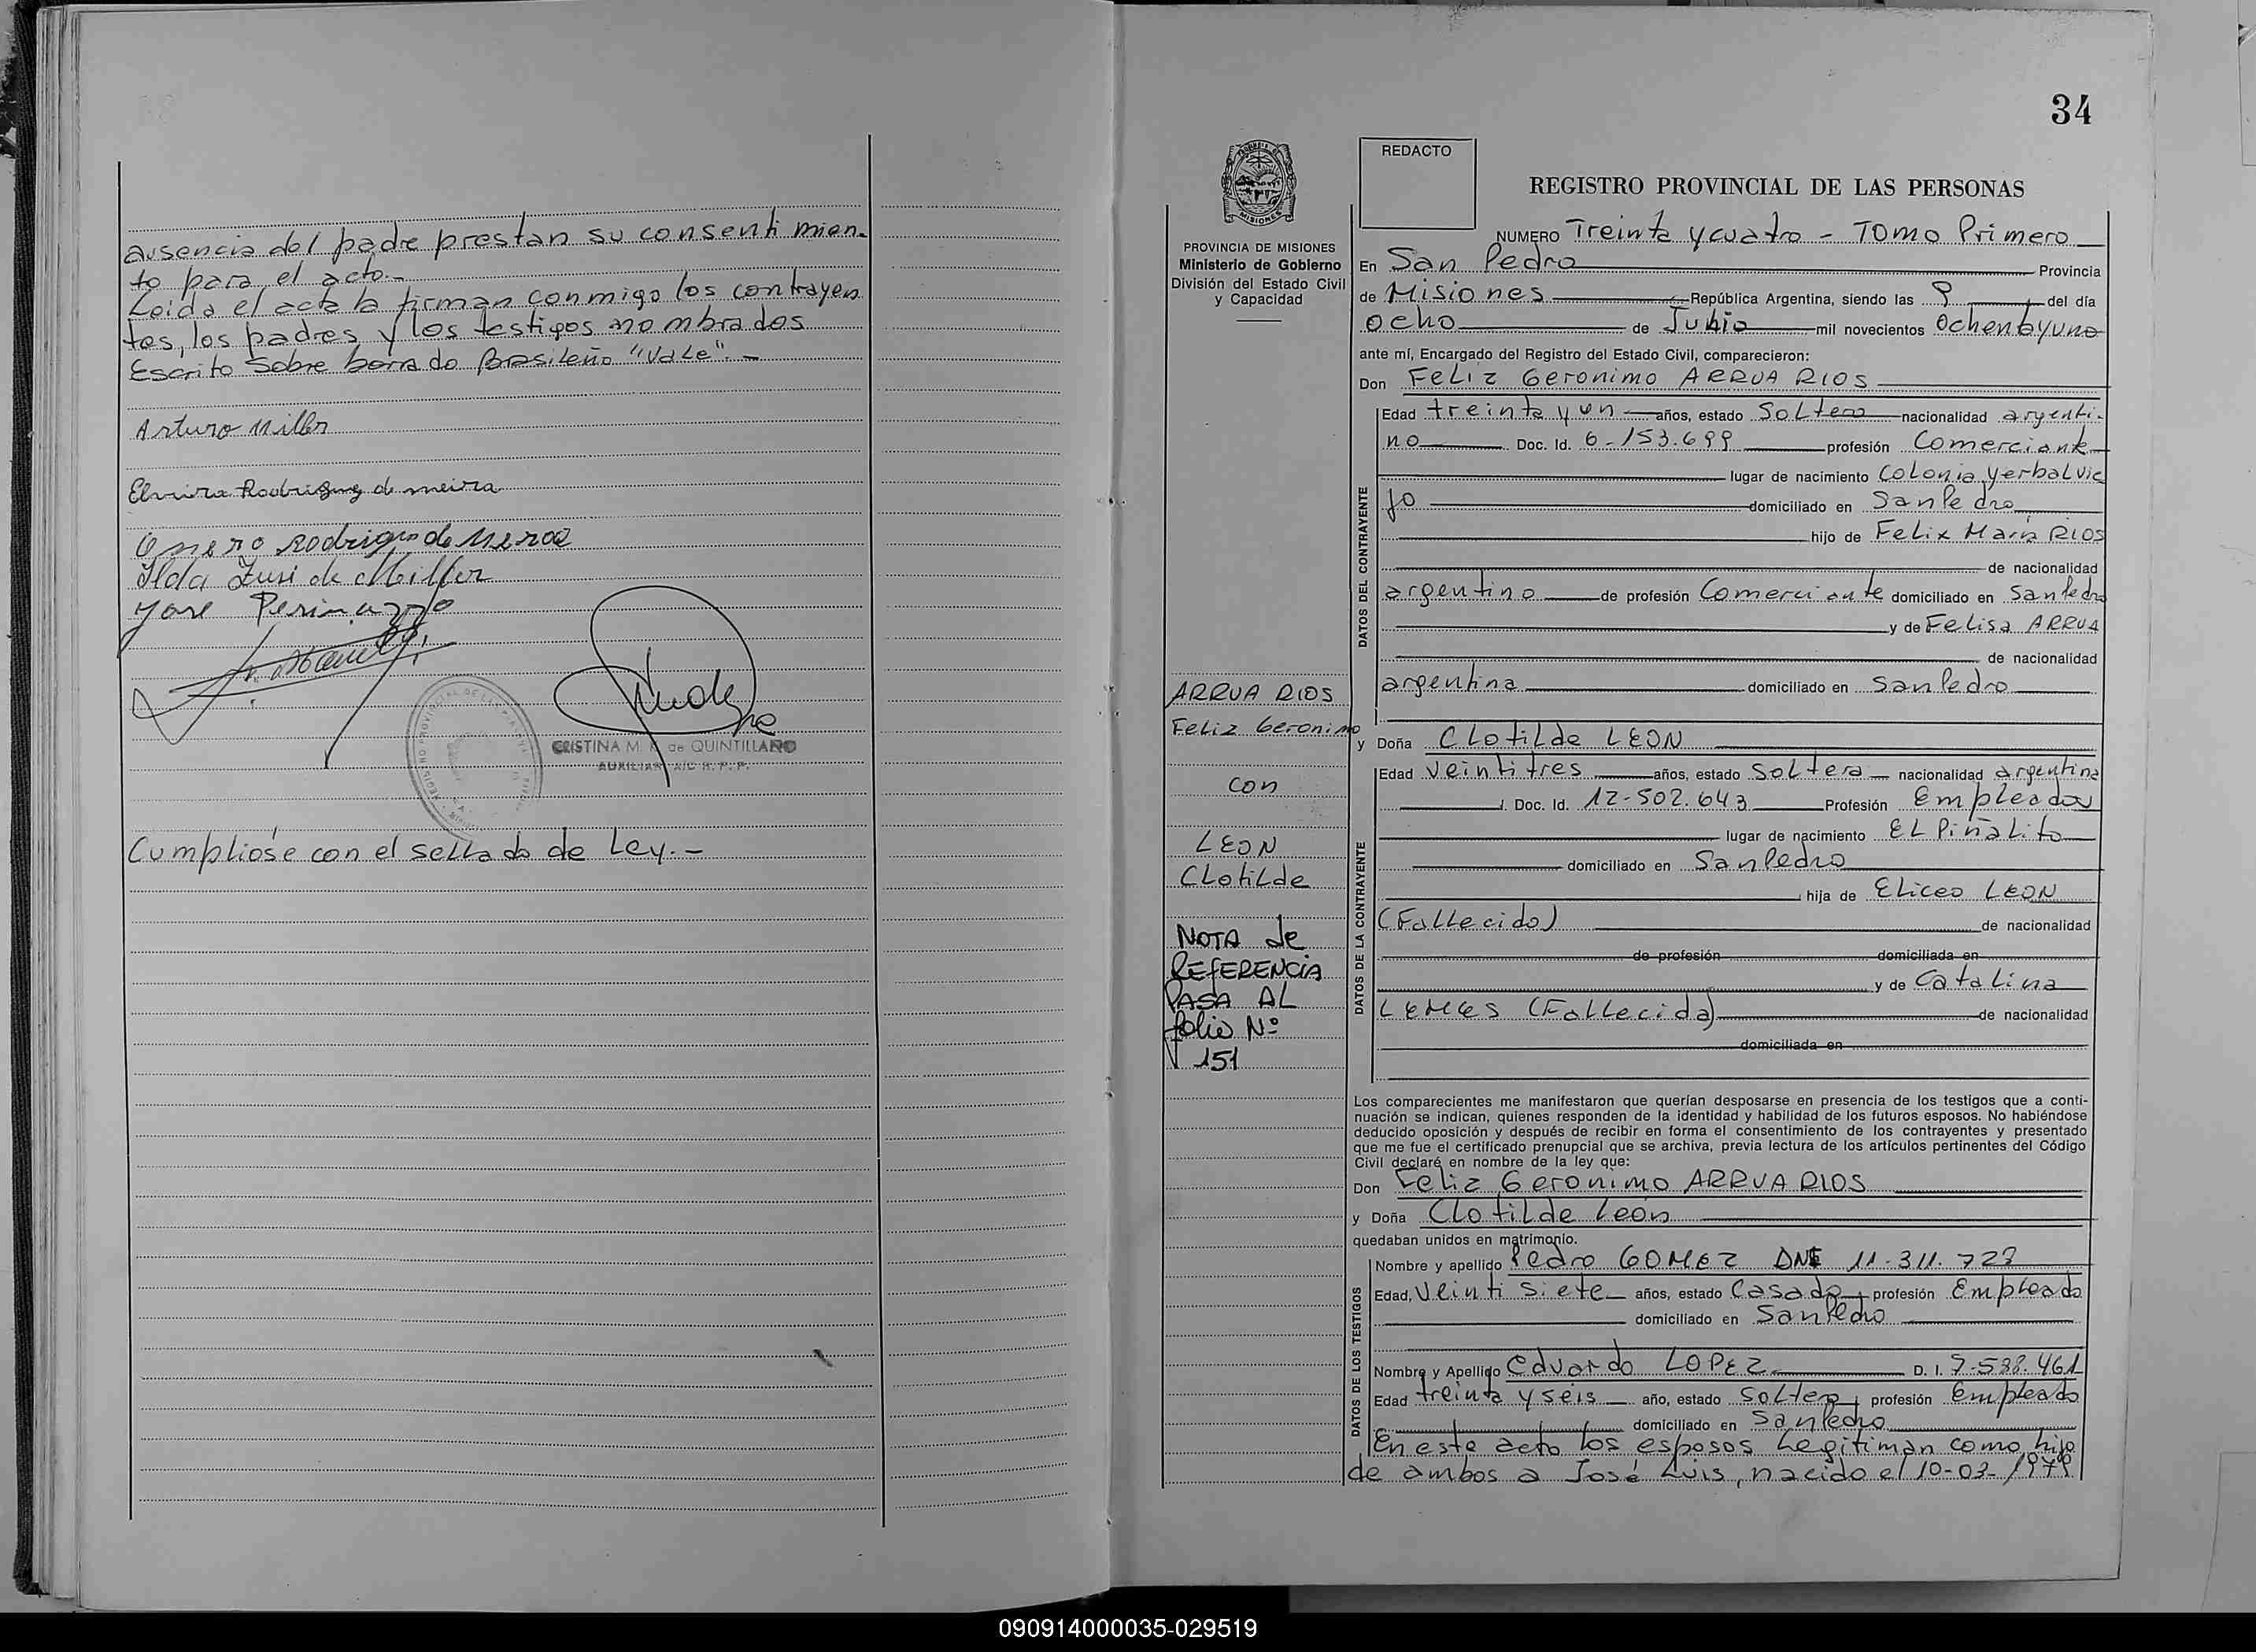 ausencia del padre prestan su consentimien-
to para el acto.-
Leida el acta la firman conmigo los contrayen
tes, los padres y los testigos nombrados
Escrito sobre borrado Brasileño "Vale".-
Arturo Miller
Elvira Rodriguez de meira
Rodrigues de
Ilda Zuri de Miller
José
CRISTINA M. R. de QUINTILLANO
AUXILIAR A/C R. P. P.
Cumplióse con el sellado de Ley.-
34
REDACTO
REGISTRO PROVINCIAL DE LAS PERSONAS
MISIONES
PROVINCIA DE MISIONES
Ministerio de Gobierno
División del Estado Civil
y Capacidad
NUMERO Treinta y cuatro - TOMO Primero
En San Pedro Provincia
de Misiones República Argentina, siendo las 9 del día
ocho de Julio mil novecientos Ochentayuno
ante mí, Encargado del Registro del Estado Civil, comparecieron:
Don Feliz Geronimo ARRUA RIOS
DATOS DEL CONTRAYENTE
Edad treinta y un años, estado Soltero nacionalidad argenti-
no Doc. Id. 6-153.699 profesión Comerciante
lugar de nacimiento Colonia Yerbal Vie
jo domiciliado en San Pedro
hijo de Felix María RIOS
de nacionalidad
argentino de profesión Comerciante domiciliado en San Pedro
y de Felisa ARRUA
de nacionalidad
argentina domiciliado en San Pedro
ARRUA RIOS
Feliz Geronimo
con
LEON
Clotilde
NOTA de
REFERENCIA
PASA AL
folio Nº
151
y Doña Clotilde LEON
DATOS DE LA CONTRAYENTE
Edad Veintitres años, estado Soltera nacionalidad argentina
Doc. Id. 12-502.643 Profesión Empleada
lugar de nacimiento EL Piñalito
domiciliado en San Pedro
hija de Eliceo LEON
(Fallecido) de nacionalidad
de profesión domiciliada en
y de Catalina
LEMES (Fallecida) de nacionalidad
domiciliada en
Los comparecientes me manifestaron que querían desposarse en presencia de los testigos que a conti-
nuación se indican, quienes responden de la identidad y habilidad de los futuros esposos. No habiéndose
deducido oposición y después de recibir en forma el consentimiento de los contrayentes y presentado
que me fue el certificado prenupcial que se archiva, previa lectura de los artículos pertinentes del Código
Civil declaré en nombre de la ley que:
Don Feliz Geronimo ARRUA RIOS
y Doña Clotilde León
quedaban unidos en matrimonio.
DATOS DE LOS TESTIGOS
Nombre y apellido Pedro GOMEZ DNI 11-311.723
Edad, Veinti Siete años, estado Casado profesión Empleado
domiciliado en San Pedro
Nombre y Apellido Eduardo LOPEZ D. I. 7-588.461
Edad treinta y seis año, estado Soltero profesión Empleado
domiciliado en San Pedro
En este acto los esposos Legitiman como hijo
de ambos a José Luis, nacido el 10-03-1979
090914000035-029519